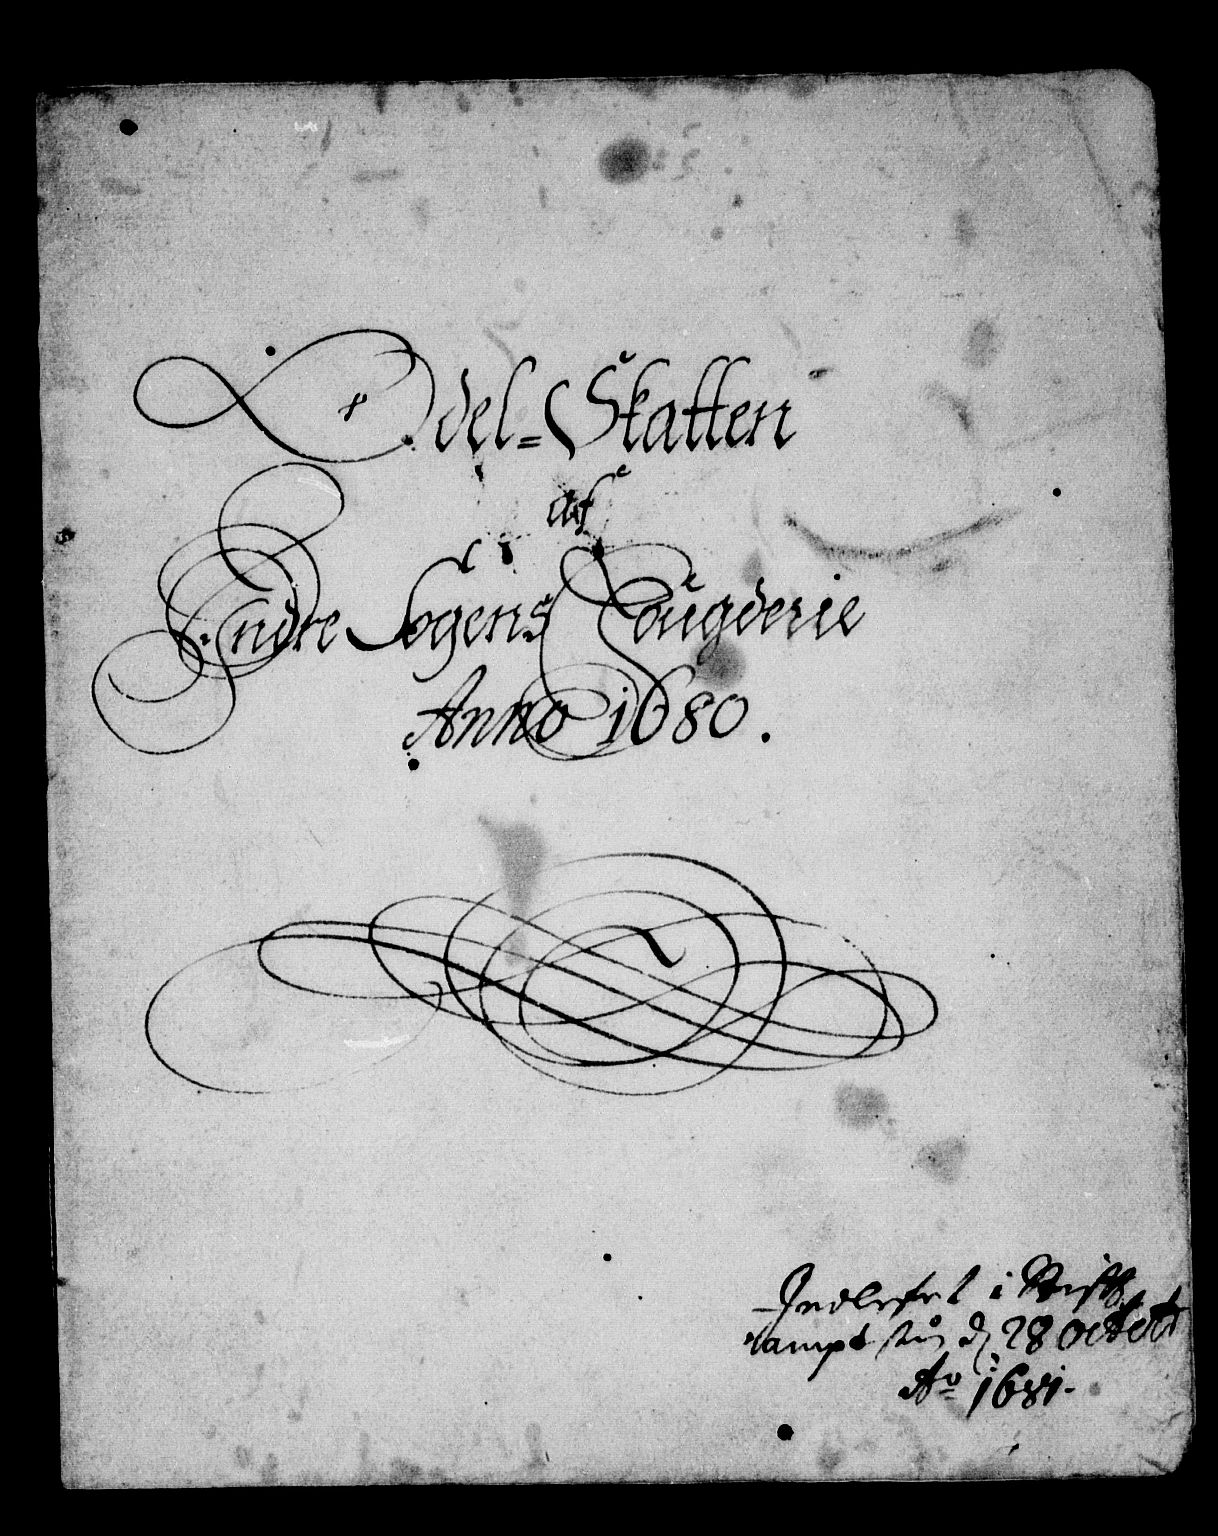 Odel=Skatten
af
Indre Sogens Fougderie
Anno 1680.
Indlefret i Rente
Camret d 28 octobr
Ao 1681.